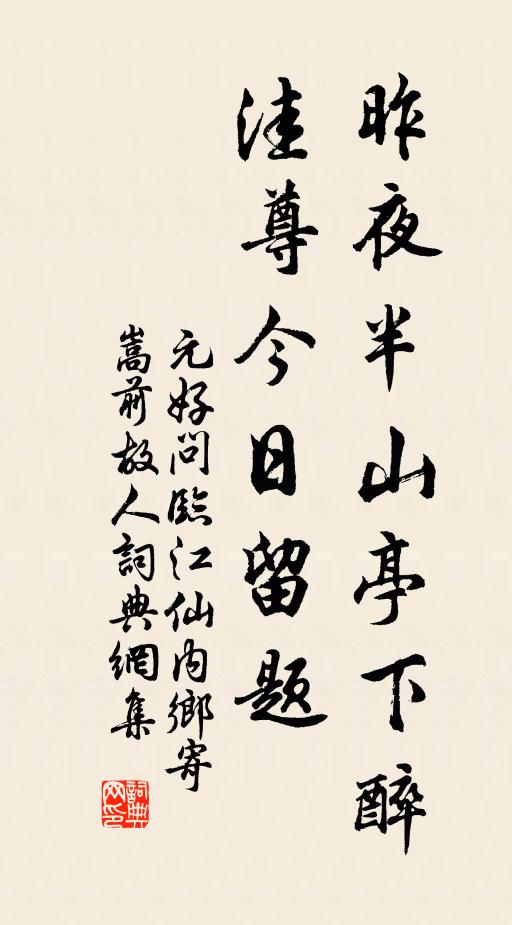 昨夜半山亭下醉
洼尊今日留题
元好问臨江仙内鄉寄
嵩前故人詞典網集
詞典
网印